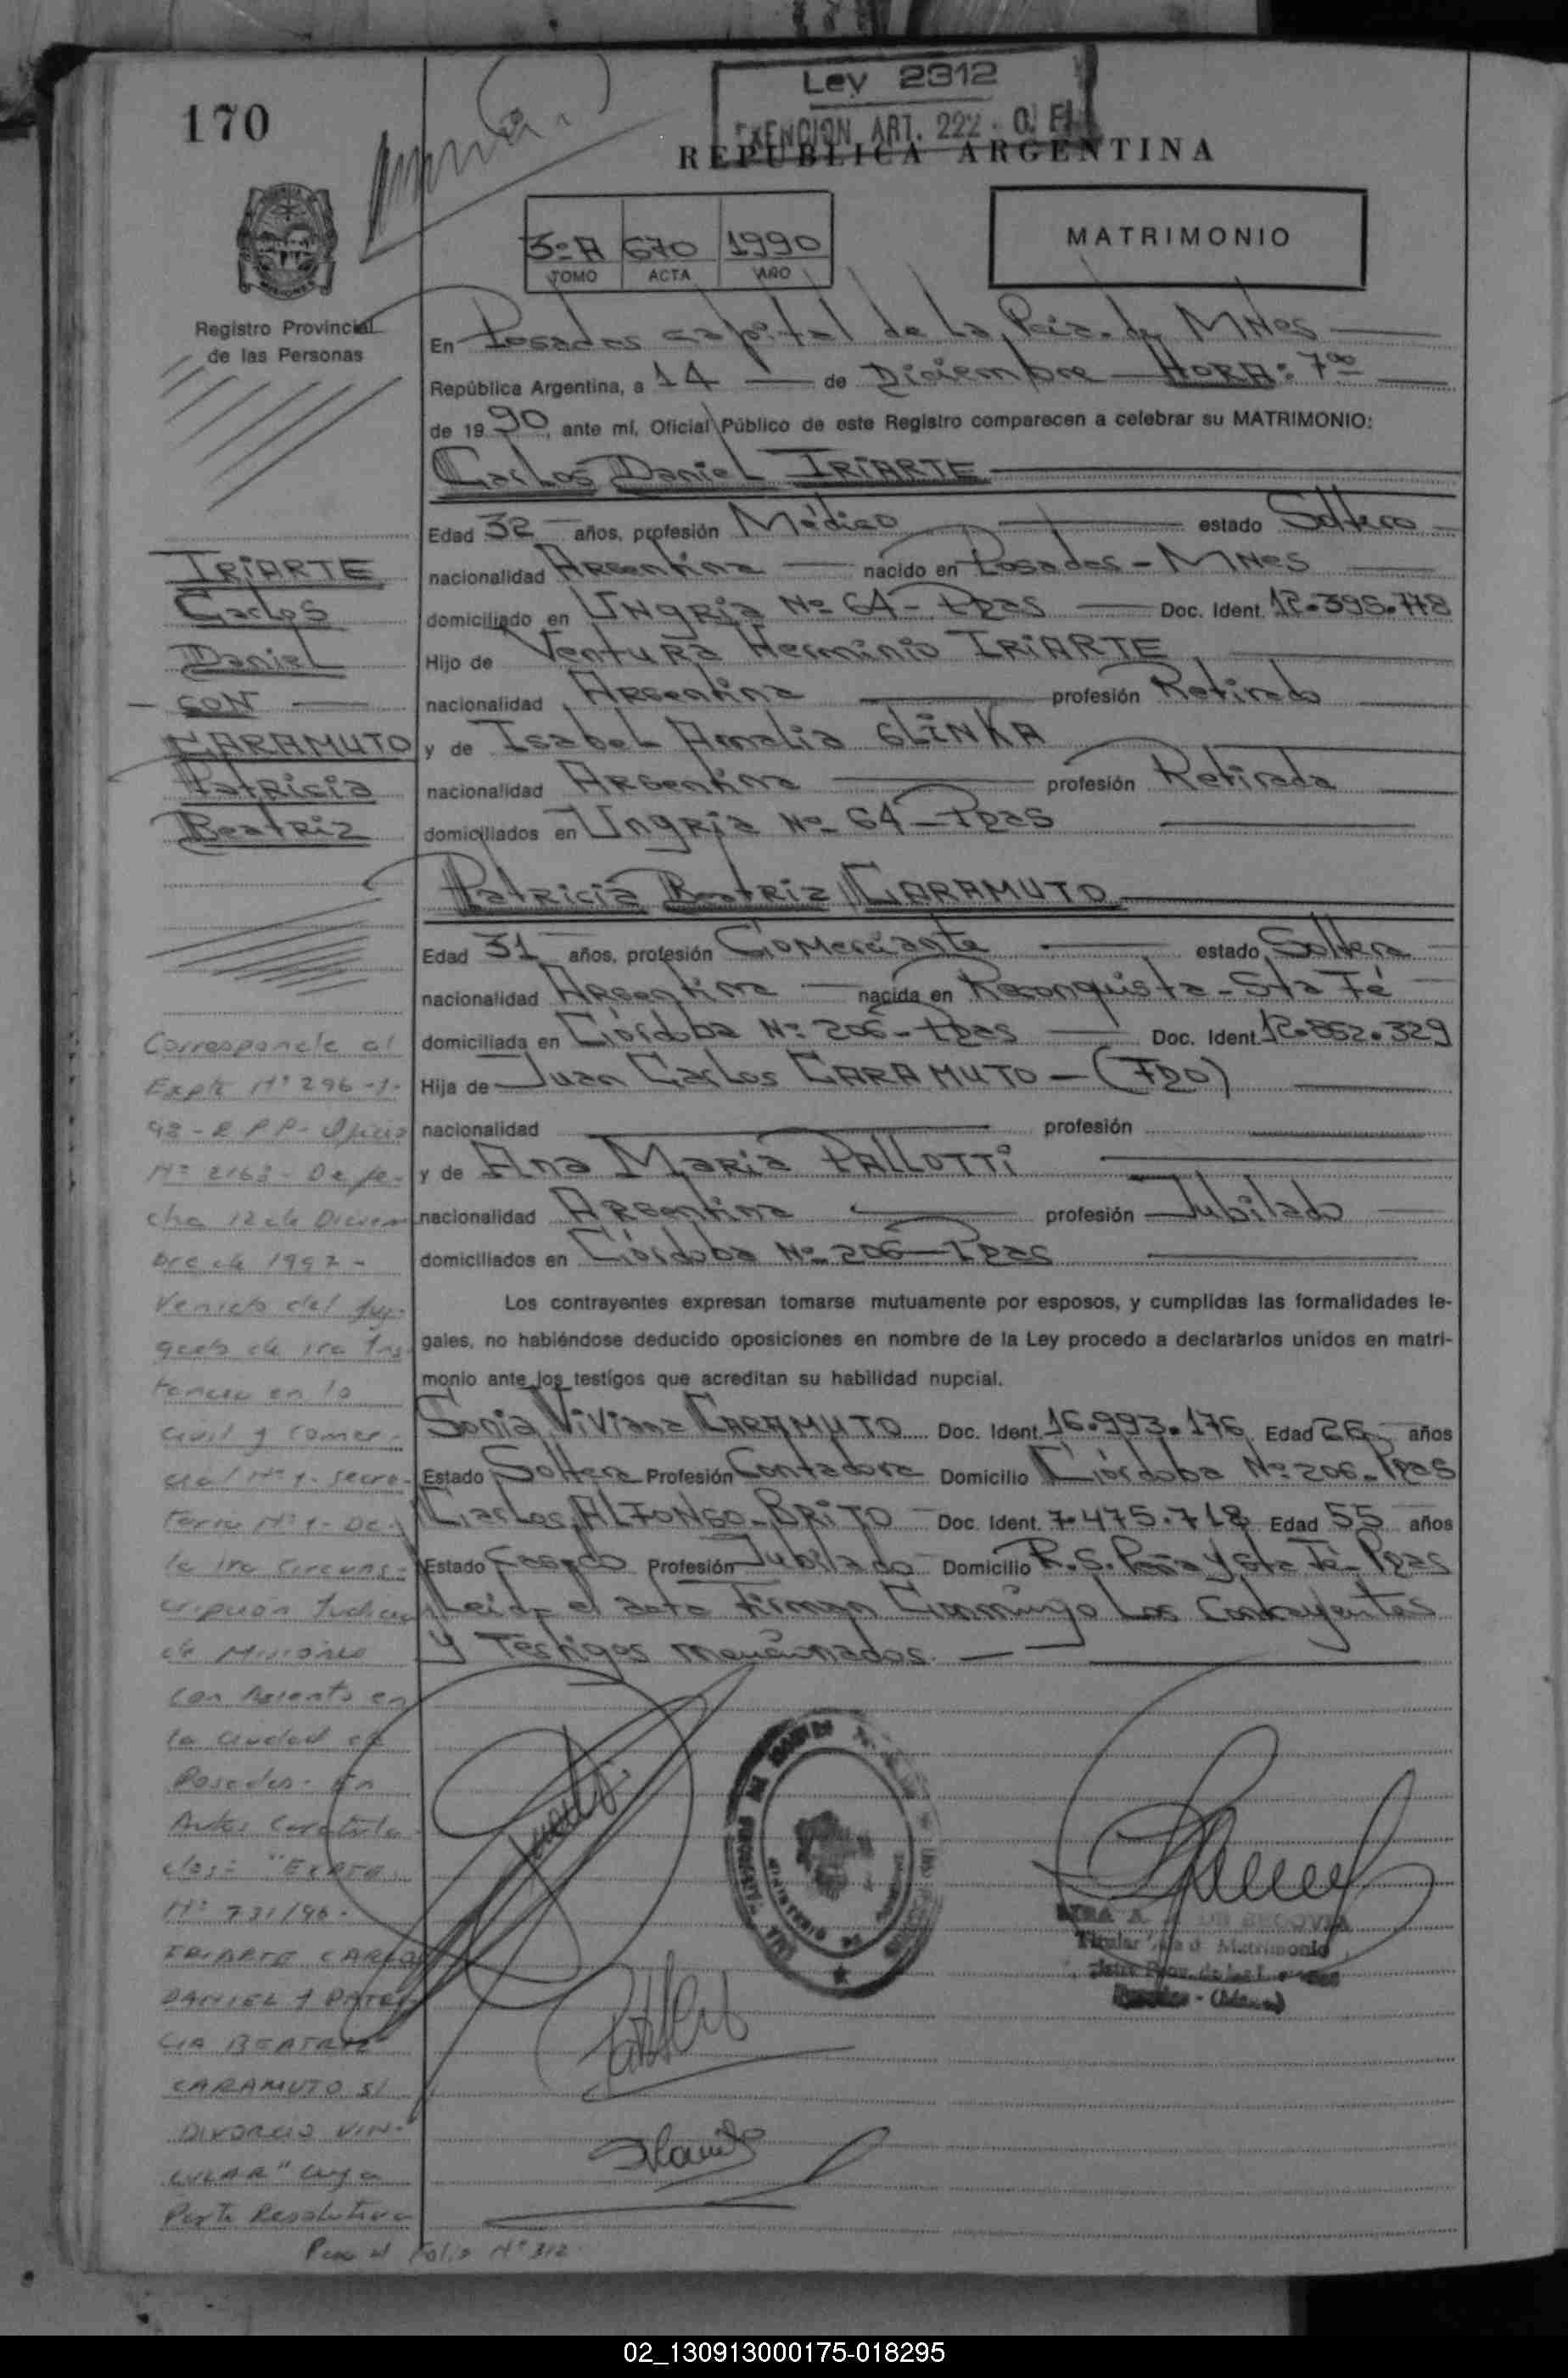 170
Ley 2312
EXENCION ART. 222 - O. F.
REPUBLICA ARGENTINA
3º A 670 1990
TOMO ACTA AÑO
MATRIMONIO
Registro Provincial
de las Personas
En Posadas capital de la Pcia. de MNes
República Argentina, a 14 de Diciembre HORA: 7⁰⁰
de 1990, ante mí, Oficial Público de este Registro comparecen a celebrar su MATRIMONIO:
Carlos Daniel IRIARTE
Edad 32 años, profesión Médico estado Soltero
nacionalidad Argentina nacido en Posadas - MNes
domiciliado en Ungría Nº 64 - Pdas Doc. Ident. 12.395.778
Hijo de Ventura Herminio IRIARTE
nacionalidad Argentina profesión Retirado
y de Isabel Amalia GLINKA
nacionalidad Argentina profesión Retirada
domiciliados en Ungría Nº 64 - Pdas
Patricia Beatriz CARAMUTO
Edad 31 años, profesión Comerciante estado Soltera
nacionalidad Argentina nacida en Reconquista - Sta Fé
domiciliada en Córdoba Nº 206 - Pdas Doc. Ident. 12.862.329
Hija de Juan Carlos CARAMUTO - (FDO)
nacionalidad profesión
y de Ana María PALLOTTI
nacionalidad Argentina profesión Jubilado
domiciliados en Córdoba Nº 206 - Pdas
Los contrayentes expresan tomarse mutuamente por esposos, y cumplidas las formalidades le-
gales, no habiéndose deducido oposiciones en nombre de la Ley procedo a declararlos unidos en matri-
monio ante los testigos que acreditan su habilidad nupcial.
Sonia Viviana CARAMUTO Doc. Ident. 16.993.176 Edad 26 años
Estado Soltera Profesión Contadora Domicilio Córdoba Nº 206 - Pdas
Carlos ALFONSO - BRITO Doc. Ident. 7.475.718 Edad 55 años
Estado Casado Profesión Jubilado Domicilio R. S. Peña y Sta Fé - Pdas
Leída el acta Firman Conmigo Los Contrayentes
y Testigos mencionados.
IRIARTE
Carlos
Daniel
- CON
CARAMUTO
Patricia
Beatriz
Corresponde al
Expte Nº 296-1-
98 - R P P - Oficio
Nº 2163 - De fe-
cha 12 de Diciem
bre de 1997 -
Venido del Juz-
gado de 1ra Ins
tancia en lo
Civil y Comer-
cial Nº 1 - Secre-
taría Nº 1 - De
la 1ra Circuns-
cripción Judicial
de Misiones
con Asiento en
la Ciudad de
Posadas - En
Autos Caratula
dos: "EXPTE
Nº 731/96 -
IRIARTE CARLOS
DANIEL Y PATRI
CIA BEATRIZ
CARAMUTO S/
DIVORCIO VIN-
CULAR" cuya
Parte Resolutiva
Pasa al Folio Nº 312
DE SEGOVIA
Titular Matrimonio
02_130913000175-018295